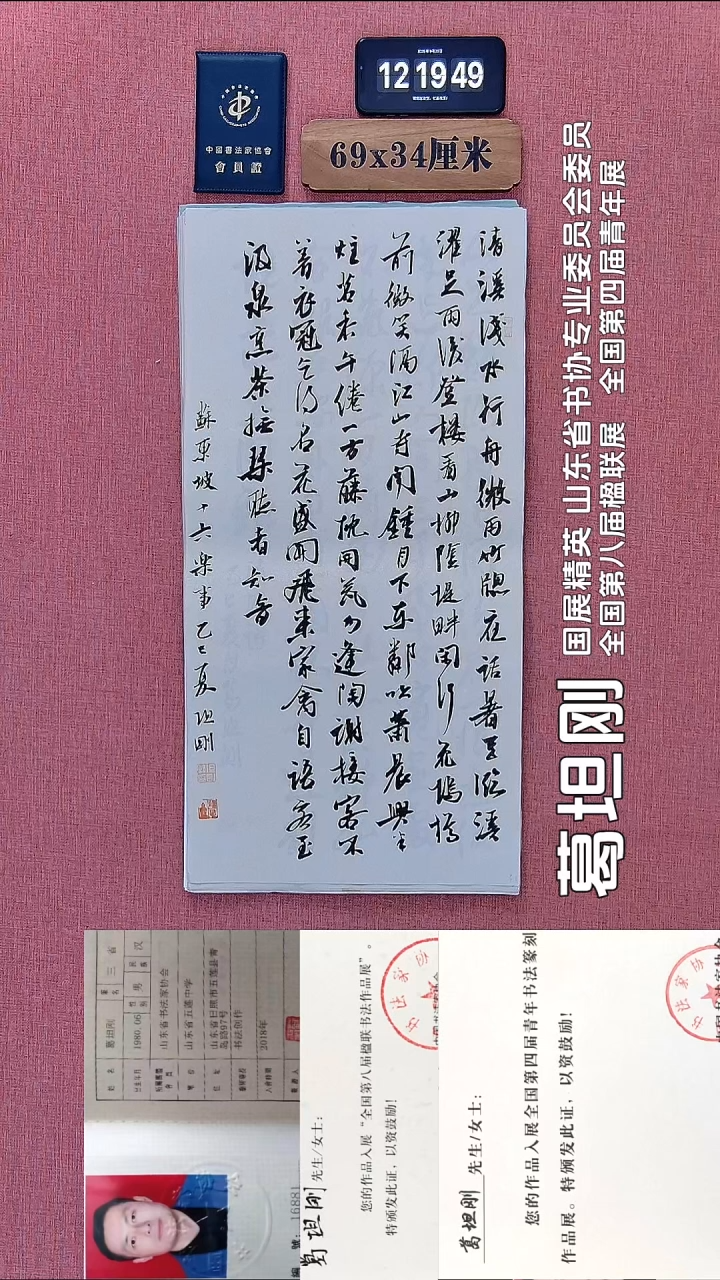 中國書法家協會
會員證
12 19 49
69x34厘米
清溪淺水行舟微雨竹窗夜話暑至臨溪
濯足雨後登樓看山柳陰堤畔閑行花塢樽
前微笑隔江山寺聞鍾月下東鄰吹簫晨興半
炷茗香午倦一方藤枕開瓮勿逢陶謝接客不
着衣冠乞得名花盛開飛來家禽自語客至
汲泉烹茶撫琴聽者知音
蘇東坡十六樂事乙巳夏坦剛
国展精英 山东省书协专业委员会委员
全国第八届楹联展 全国第四届青年展
葛坦刚
葛坦刚
1980.06
男
汉
山东省书法家协会
山东省五莲中学
山东省日照市五莲县青
岛路97号
书法创作
2018年
编 號：16881
葛坦刚 先生/女士：
您的作品入展“全国第八届楹联书法作品展”。
特颁发此证，以资鼓励！
葛坦刚 先生/女士：
您的作品入展全国第四届青年书法篆刻
作品展。特颁发此证，以资鼓励！